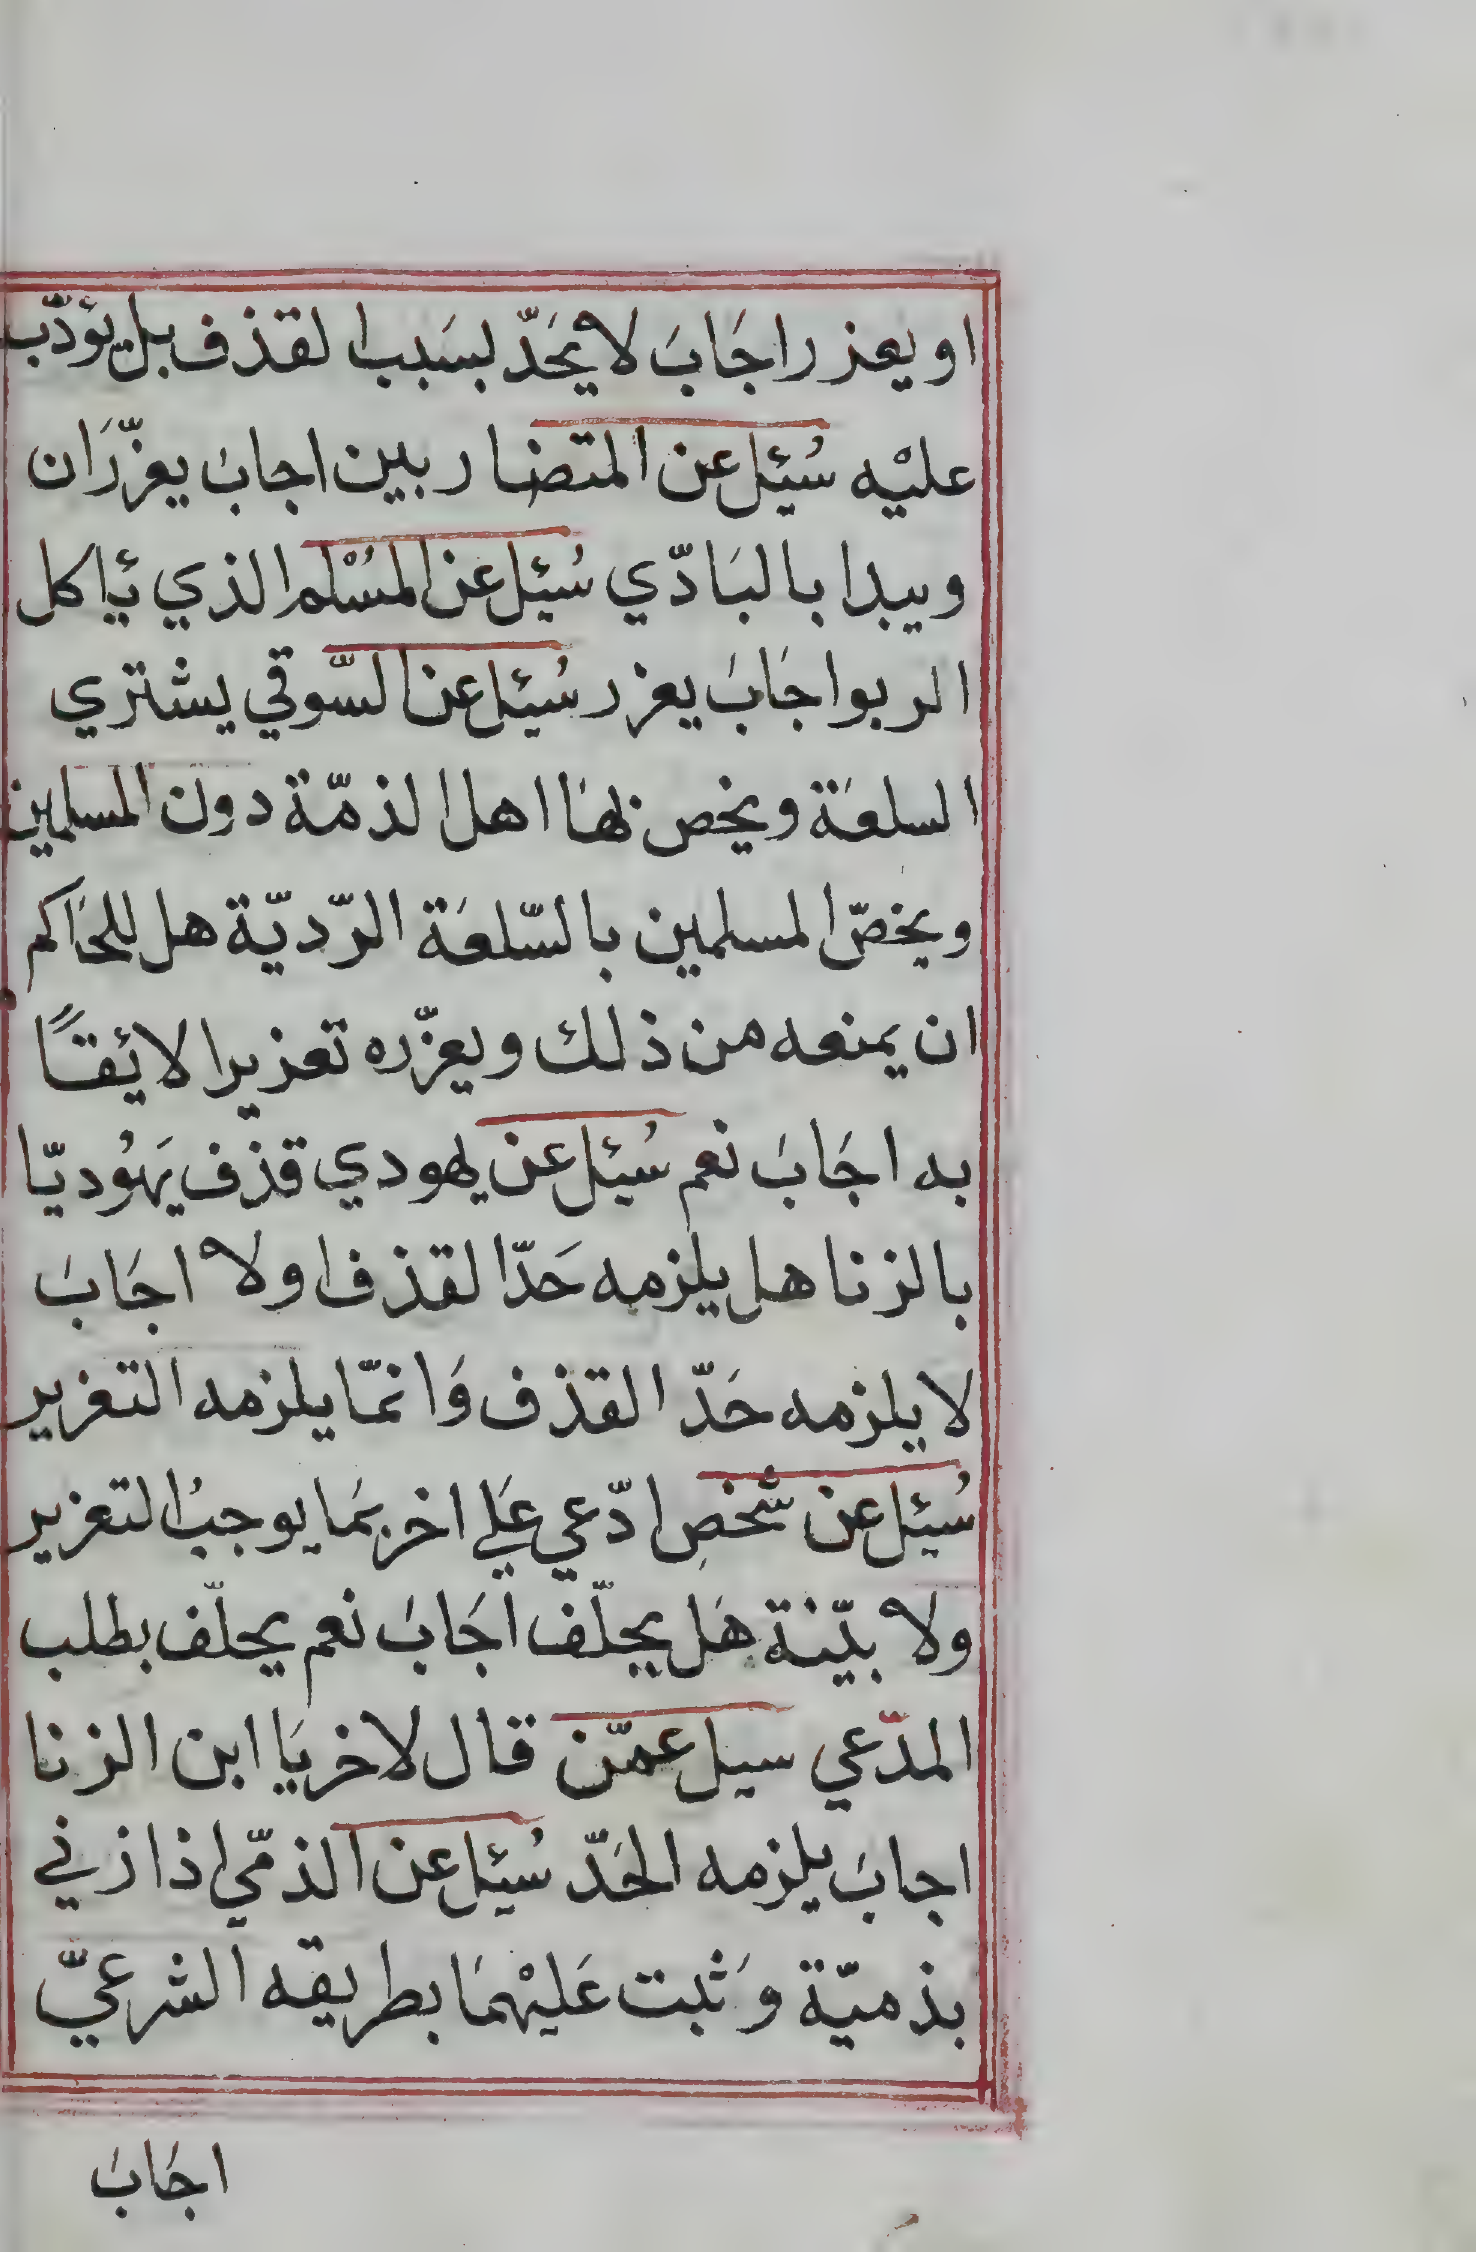 او يعزر اجَابَ لا يحَدّ بسَبب القذف بل يؤدّب
عليْه سُئِل عن المتضاربين اجابَ يعزّرَان
ويبدا بالبَادّي سُئِل عن المسْلم الذي ياكل
الربوا جَابَ يعزر سُئِل عن السّوقي يشتري
السلعَة ويخص بهَا اهل الذمّة دون المسلمين
ويخصّ المسلمين بالسّلعَة الرّديّة هل للحَاكم
ان يمنعه من ذلك ويعزّره تعزيرا لائقًا
به اجَابَ نعم سُئِل عن يهودي قذف يهُوديّا
بالزنا هل يلزمه حَدّ القذف اولا اجَابَ
لا يلزمه حَدّ القذف وَانمّا يلزمه التعزير
سُئِل عن شخصٍ ادّعي عَلي اخر بمَا يوجبُ التعزير
ولا بيّنة هَل يحلّف اجَابَ نعم يحلّف بطلب
المدّعي سيل عمّن قال لاخر يَا ابن الزنا
اجابَ يلزمه الحَدّ سُئِل عن الذمّي اذا زني
بذميّة وَثبت عَليْهمَا بطريقه الشرعيّ
اجَابَ